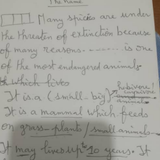 The Name
Many spices are under
the threaten of extinction because
of many reasons. ......... is one
of the most endangered animals
which live
It is a (small - big)
It is a mammal which feeds
on grass - plants / small animals
It may lives up to 10 years. It